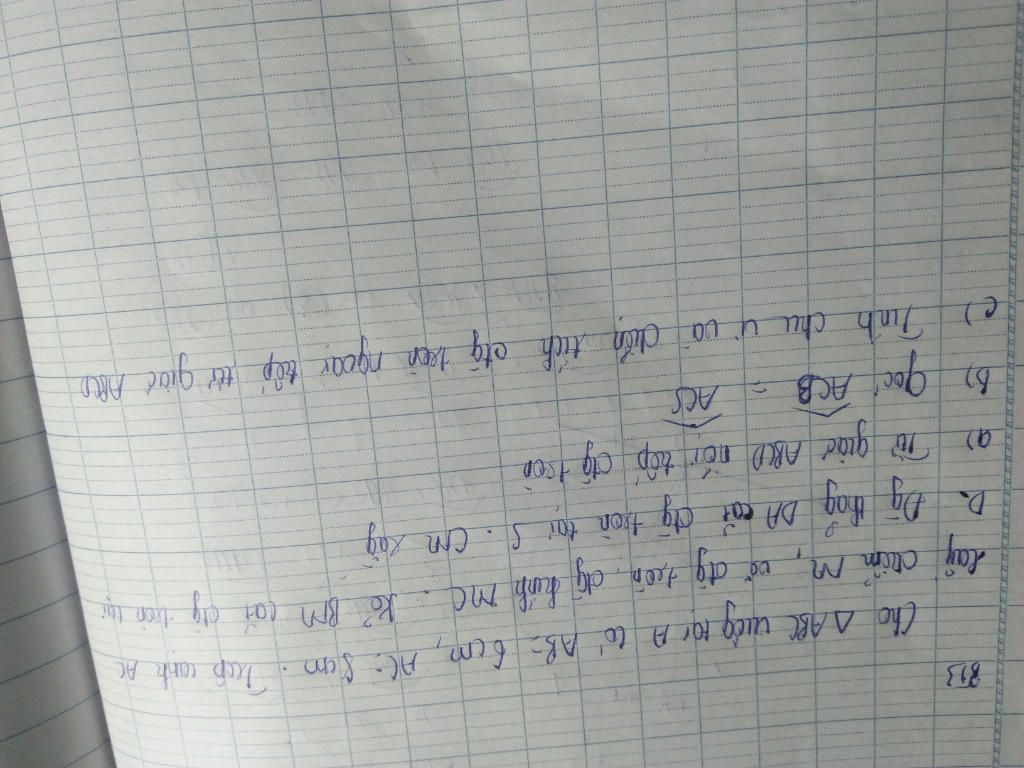 B13
Cho △ABC vuông tại A có AB = 6cm, AC = 8cm. Trên cạnh AC
lấy điểm M, vẽ đg tròn đg kính MC. Kẻ BM cắt đg tròn tại
D. Đg thẳg DA cắt đg tròn tại S. CM rằg
a) Tứ giác ABCD nội tiếp đg tròn
b) Góc ACB = ACS
c) Tính chu vi và diện tích đg tròn ngoại tiếp tứ giác ABCD